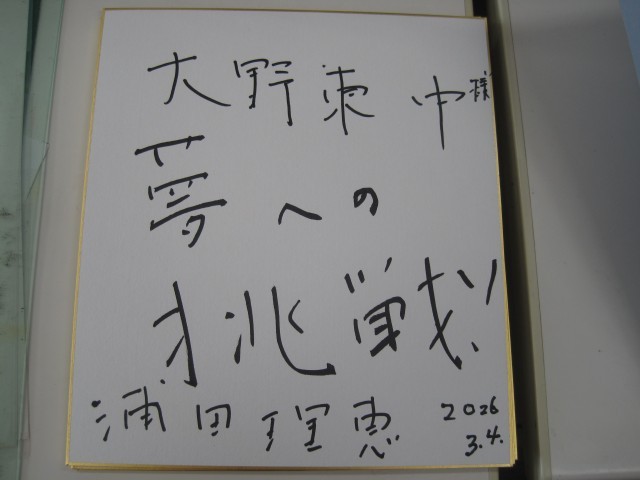 大野東中様
夢への
挑戦
浦田理恵
2026
3.4.